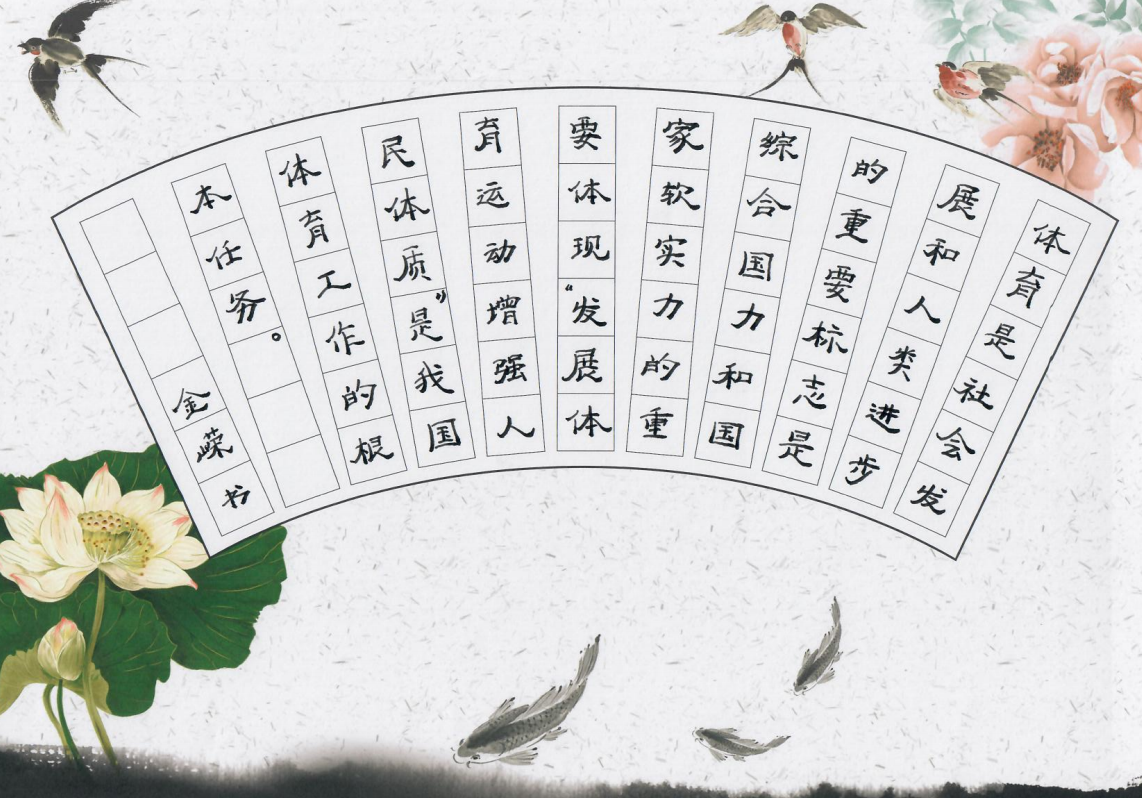 体育是社会发
展和人类进步
的重要标志是
综合国力和国
家软实力的重
要体现“发展体
育运动增强人
民体质”是我国
体育工作的根
本任务。
金嵘书